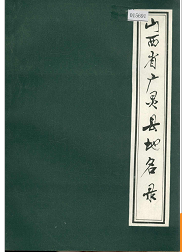 山西省广灵县地名录